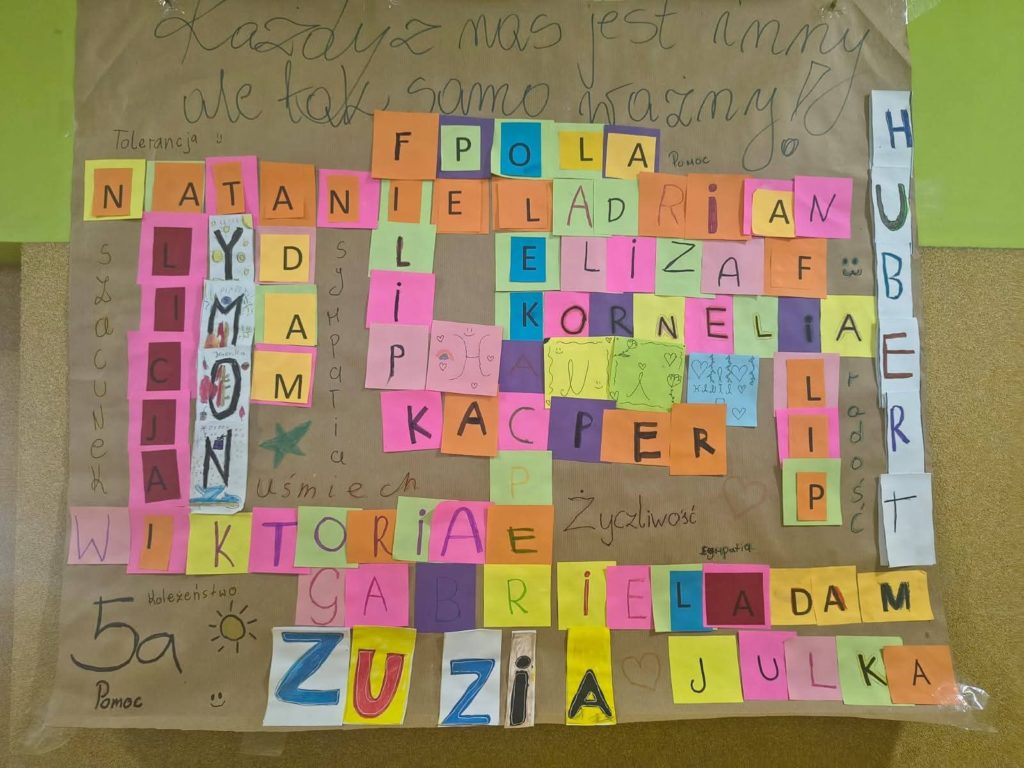 Każdy z nas jest inny
ale tak samo ważny!
Tolerancja
Pomoc
FILIP
POLA
NATANIEL
ADRIAN
HUBERT
LICJA
YMON
DAM
ELIZA
FILIP
KORNELIA
KACPER
KACPER
szacunek
sympatia
radość
uśmiech
Życzliwość
WIKTORIA
Koleżeństwo
GABRIEL
ADAM
5a
ZUZIA
JULKA
Pomoc